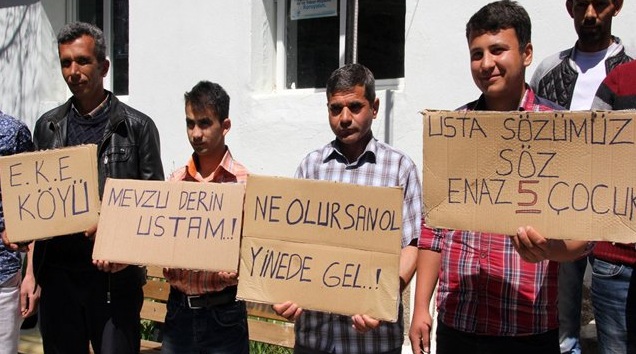 E.K.E
KÖYÜ
MEVZU DERİN
USTAM..!
NE OLURSAN OL
YİNEDE GEL..!
USTA SÖZÜMÜZ
SÖZ
ENAZ 5 ÇOCUK